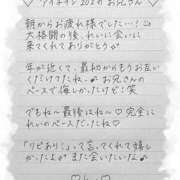 ♡ ツイキャス 202のお兄さん ♡
朝からお疲れ様でした…!!
大格闘の後、れいに会いに
来てくれてありがとう
年が近くて、最初からもうお互い
くだけてたね〜♪ お兄さんの
ペースで悔しかったけど！笑
でもね〜最後はね〜♡完全に
れいのペースだったね♡
「リピあり」って言ってくれて嬉し
かったよ また会いたいな♪